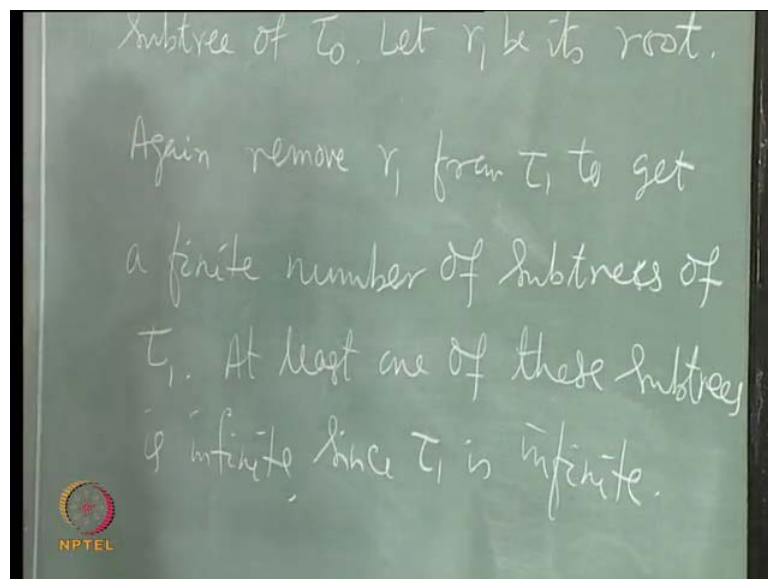 Subtree of τ₀. Let r₁ be its root.
Again remove r₁ from τ₁ to get
a finite number of subtrees of
τ₁. At least one of these subtrees
is infinite, since τ₁ is infinite.
NPTEL